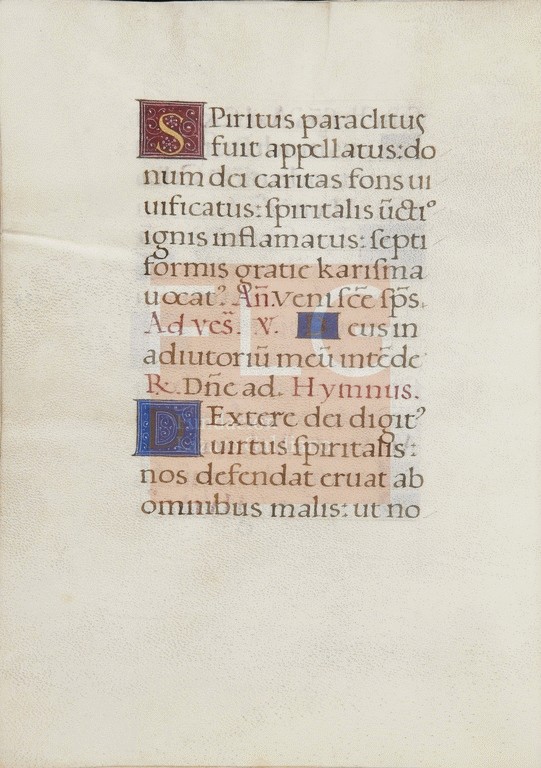 SPiritus paraclitus
fuit appellatus: do
num dei caritas fons ui
uificatus: spiritalis ũcti⁹
ignis inflamatus: septi
formis gratie karisma
uocat⁹. Añ. Veni scẽ sp̃s.
Ad ves̃. V. Deus in
adiutoriũ meũ intẽde
R. Dñe ad. Hymnus.
DExtere dei digit⁹
uirtus spiritalis:
nos defendat eruat ab
omnibus malis: ut no
FLG